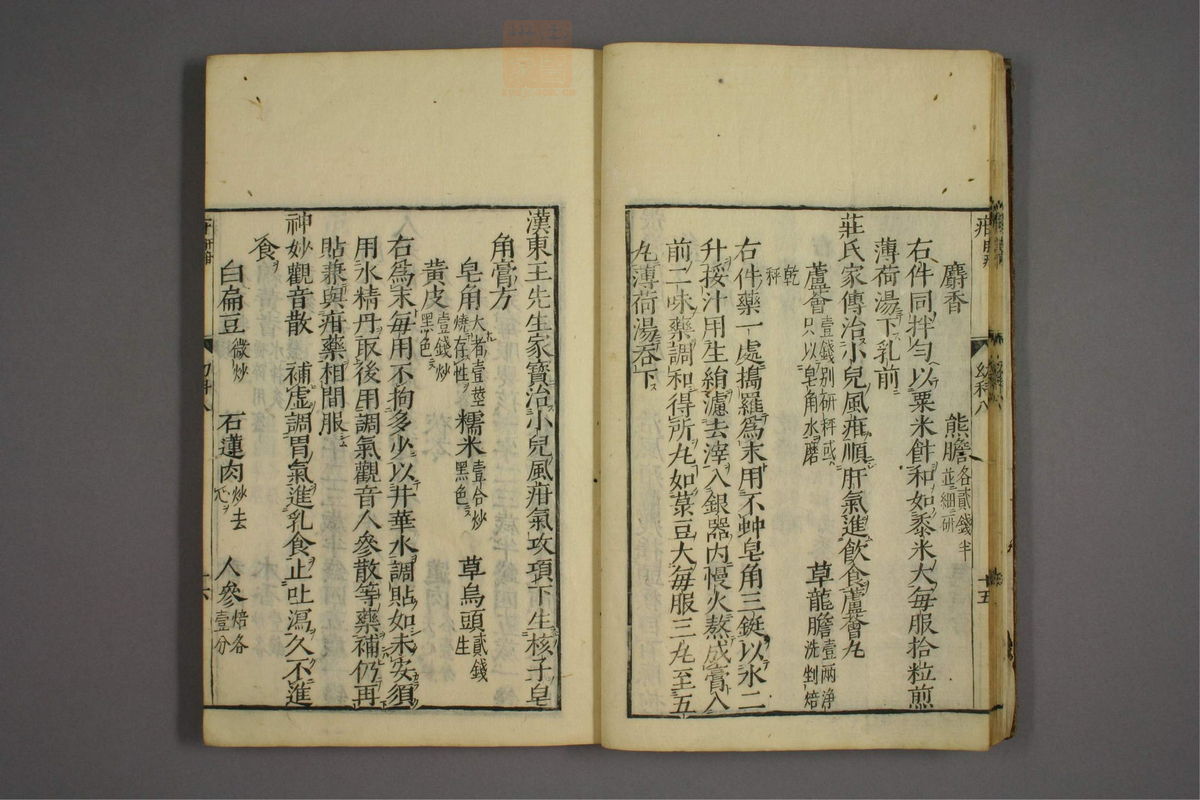 麝香　熊膽各貳錢半並細研
右件同拌勻以粟米飰和如黍米大每服拾粒煎
薄荷湯下乳前
莊氏家傳治小兒風疳順肝氣進飲食蘆薈丸
蘆薈壹錢別研秤或只以皂角水磨　草龍膽壹兩淨洗剉焙
乾秤
右件藥一處搗羅爲末用不蚛皂角三鋌以水二
升挼汁用生絹濾去滓入銀器內慢火熬成膏入
前二味藥調和得所丸如菉豆大每服三丸至五
丸薄荷湯吞下
疳
幼科八
十五
漢東王先生家寶治小兒風疳氣攻項下生核子皂
角膏方
皂角大者壹莖燒存性　糯米壹合炒黑色　草烏頭貳錢生
黃皮壹錢炒黑色
右爲末每用不拘多少以井華水調貼如未安須
用水精丹取後用調氣觀音人參散等藥補仍再
貼兼與疳藥相間服
神妙觀音散　補虛調胃氣進乳食止吐瀉久不進
食
白扁豆微炒　石蓮肉炒去心　人參焙各壹分
十六